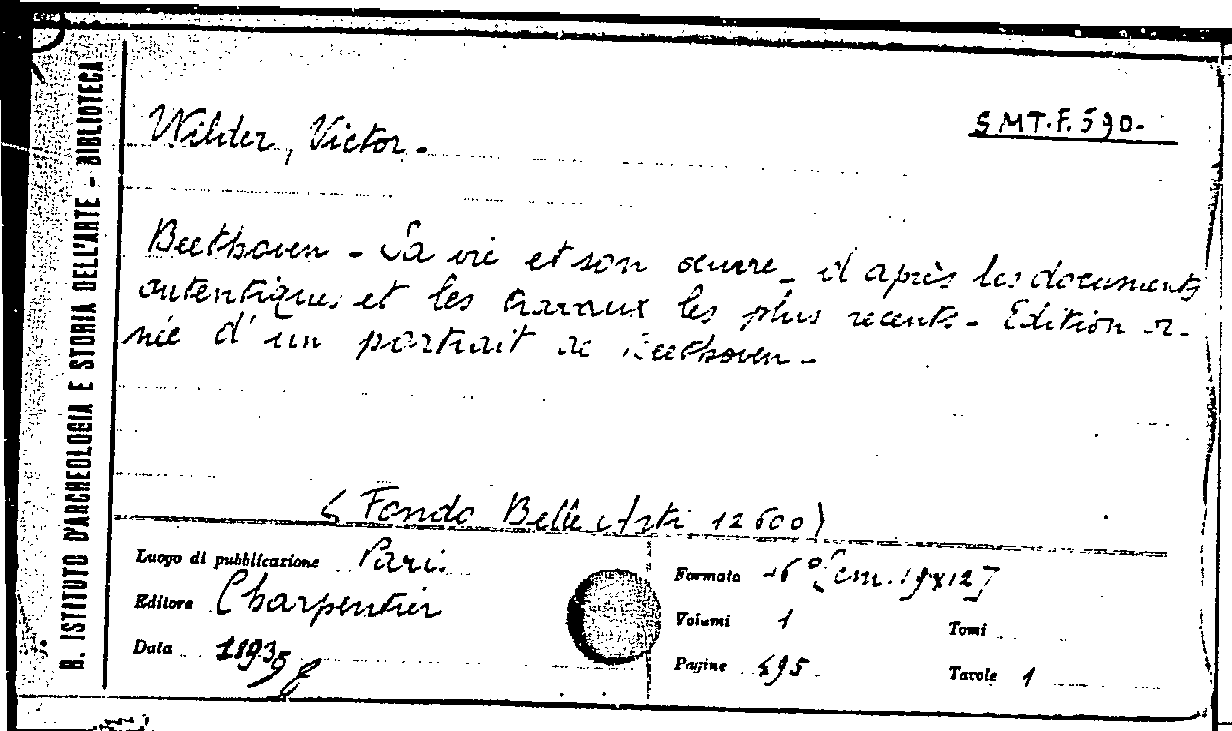 B. ISTITUTO D'ARCHEOLOGIA E STORIA DELL'ARTE - BIBLIOTECA
Wilder, Victor.
SMT.F.590.
Beethoven - Sa vie et son œuvre - d'après les documents
autentiques et les travaux les plus recents - Edition or-
née d'un portrait de Beethoven -
(Fondo Belle Arti 12600)
Luogo di pubblicazione Paris
Editore Charpentier
Data
Formato 16° [cm. 19x12]
Volumi 1
Tomi
Pagine 495
Tavole 1